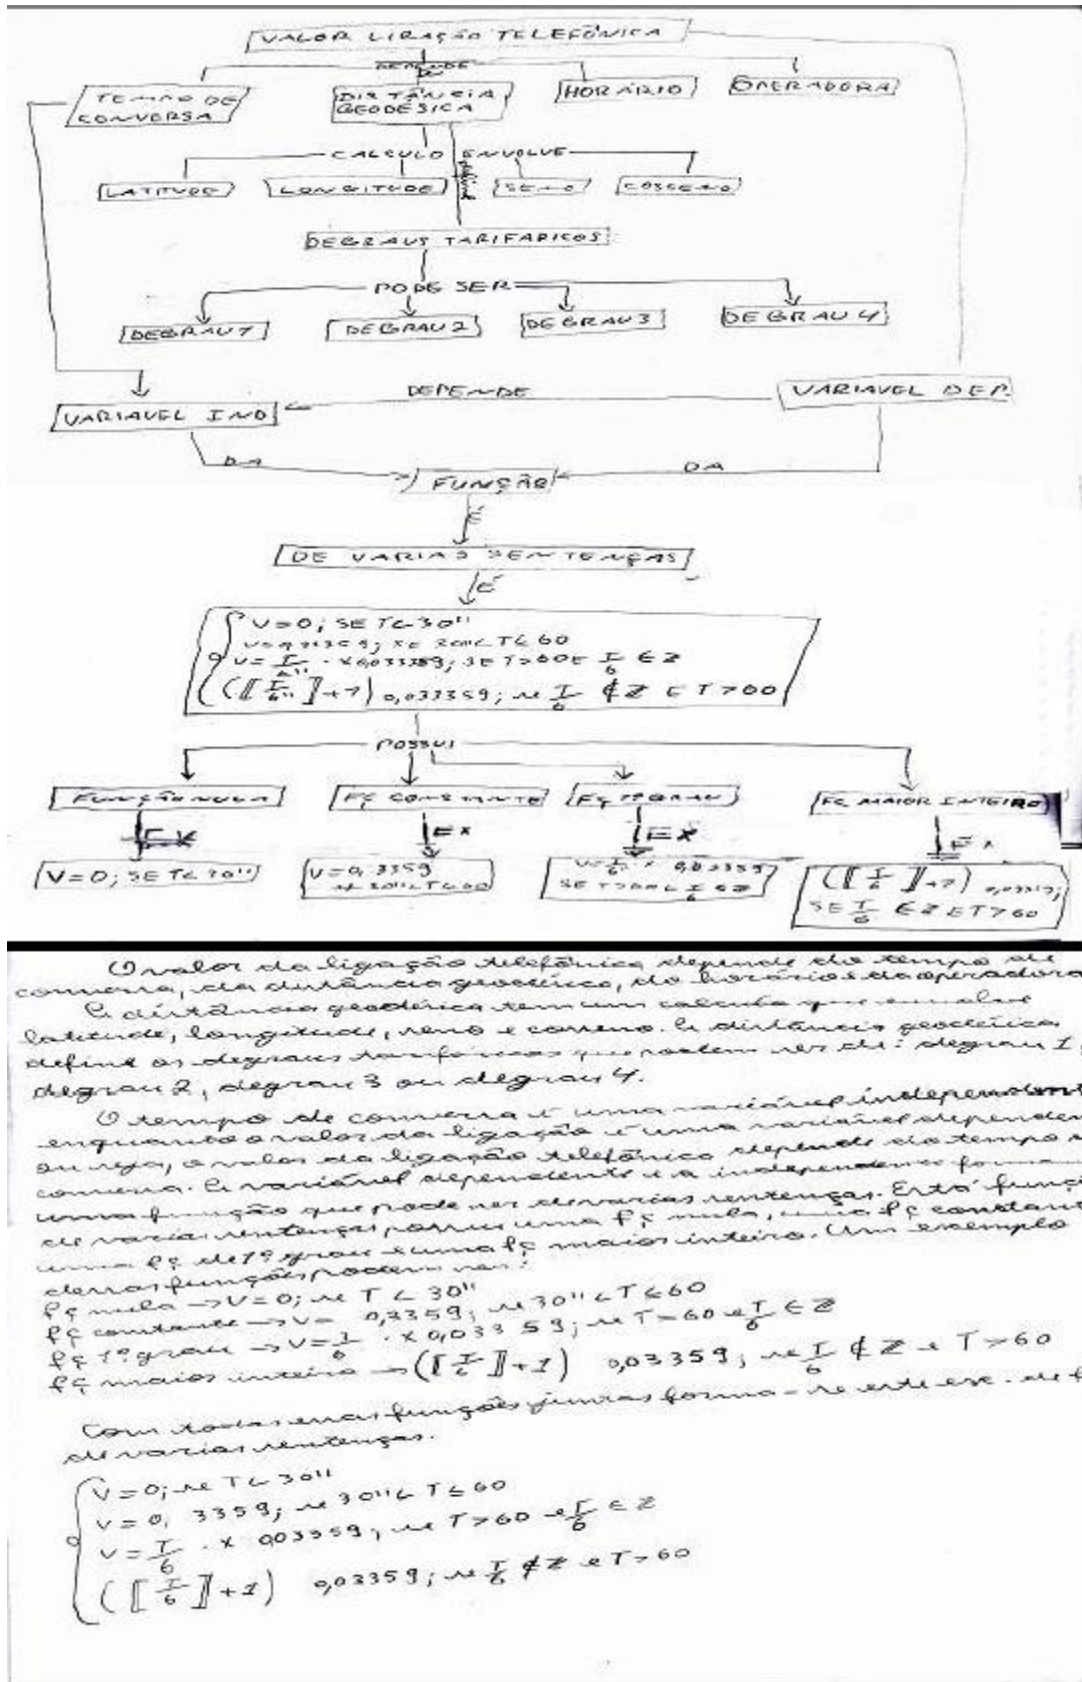 VALOR LIGAÇÃO TELEFÔNICA
DEPENDE
TEMPO DE
CONVERSA
DISTÂNCIA
GEODÉSICA
HORÁRIO
OPERADORA
CALCULO ENVOLVE
LATITUDE
LONGITUDE
SENO
COSSENO
DEGRAUS TARIFARICOS
PODE SER
DEGRAU 1
DEGRAU 2
DEGRAU 3
DEGRAU 4
VARIAVEL IND
DEPENDE
VARIAVEL DEP.
DA
FUNÇÃO
DA
É
DE VARIAS SENTENÇAS
É
V=0; SE T<30"
SE 30"<T≤60
V= T/6" · x 0,033359; SE T>60 E T/6 ∈ Z
(⟦T/6"⟧+1) 0,033359; se T/6 ∉ Z E T>60
POSSUI
FUNÇÃO NULA
Fç CONSTANTE
Fç 1º GRAU
Fç MAIOR INTEIRO
EX
EX
EX
EX
V=0; SE T<30"
V=0,3359
se 30"<T≤60
V=T/6 · x 0,03359
SE T>60 E T/6 ∈ Z
(⟦T/6⟧+1) 0,03359;
SE T/6 ∈ Z E T>60
O valor da ligação telefônica depende do tempo de
conversa, da distância geodésica, do horário e da operadora
A distância geodésica tem um calculo que envolve
latitude, longitude, seno e cosseno. A distância geodésica
define os degraus que podem ser de: degrau 1,
degrau 2, degrau 3 ou degrau 4.
O tempo de conversa é uma variável independent
enquanto o valor da ligação é uma variável dependen
ou seja, o valor da ligação telefônica depende do tempo
conversa. A variável dependente e a independente forma
uma função que pode ser de varias sentenças. Está funç
de varias sentenças possui uma fç nula, uma fç constant
uma fç de 1º grau e uma fç maior inteiro. Um exemplo
dessas funções podem ser:
fç nula → V=0; se T<30"
fç constante → V= 0,3359; se 30"<T≤60
fç 1º grau → V=T/6 · x 0,03359; se T>60 e T/6 ∈ Z
fç maior inteiro → (⟦T/6⟧+1) 0,03359; se T/6 ∉ Z e T>60
Com todas essas funções juntas forma-se este ex. de f
de varias sentenças.
V=0; se T<30"
V=0, 3359; se 30"<T≤60
V=T/6 · x 0,03359; se T>60 e T/6 ∈ Z
(⟦T/6⟧+1) 0,03359; se T/6 ∉ Z e T>60